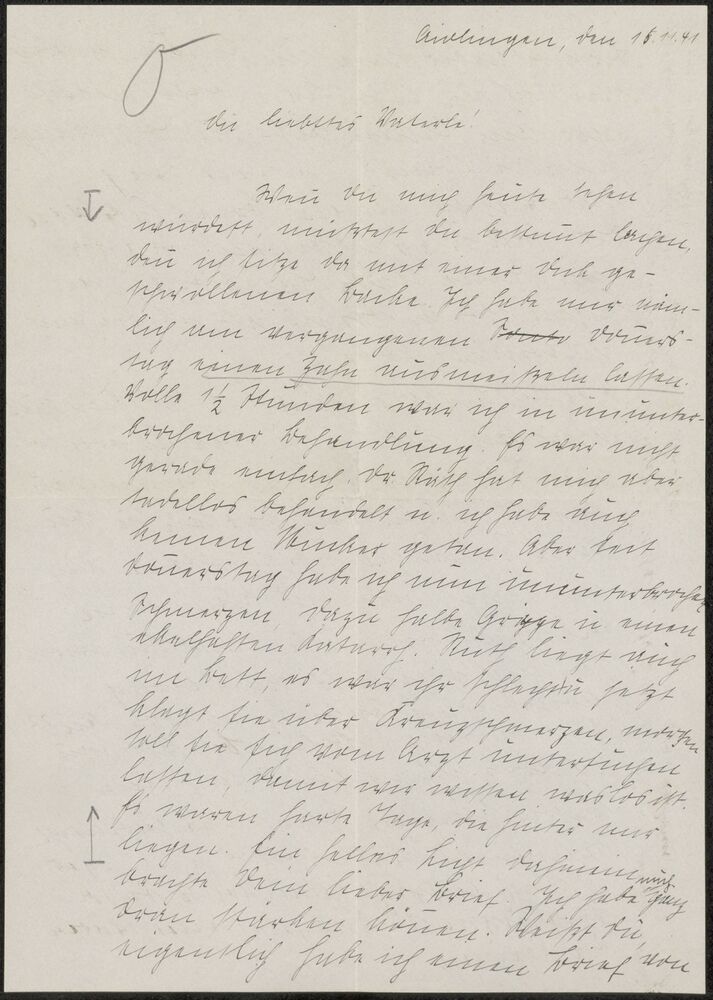 Aidlingen, den 15.11.41
Du liebstes Vaterle!
Wenn Du mich heute sehen
würdest, müsstest Du bestimmt lachen,
denn ich sitze da mit einer dick ge-
schwollenen Backe. Ich habe mir näm-
lich am vergangenen Donners-
tag einen Zahn ausmeißeln lassen.
Volle 1½ Stunden war ich in ununter-
brochener Behandlung. Es war nicht
gerade einfach. Dr. Räth hat mich aber
tadellos behandelt u. ich habe auch
keinen Mucker getan. Aber seit
Donnerstag habe ich nun ununterbrochen
Schmerzen, dazu halbe Grippe u. einen
ekelhaften Katarrh. Ruth liegt auch
im Bett, es war ihr schlecht u. jetzt
klagt sie über Kreuzschmerzen, morgen
soll sie sich vom Arzt untersuchen
lassen, damit wir wissen was los ist.
Es waren harte Tage, die hinter mir
liegen. Ein helles Licht dahinein
brachte Dein lieber Brief. Ich habe mich ganz
dran stärken können. Weißt Du,
eigentlich habe ich einen Brief von